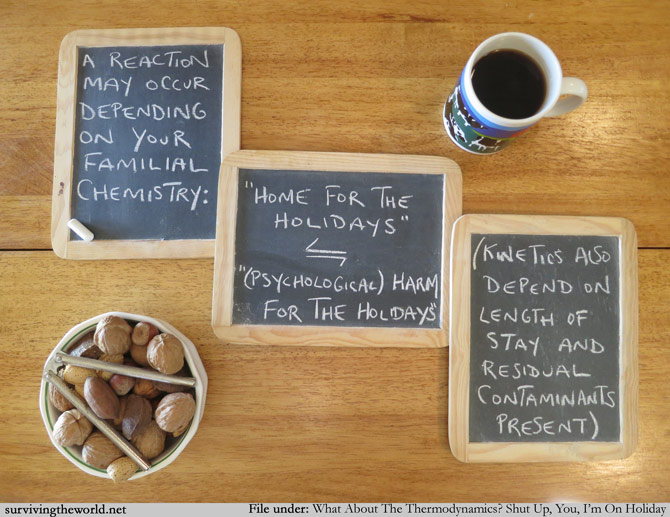 A REACTION
MAY OCCUR
DEPENDING
ON YOUR
FAMILIAL
CHEMISTRY:
"HOME FOR THE
HOLIDAYS"
⇌
"(PSYCHOLOGICAL) HARM
FOR THE HOLIDAYS"
(KINETICS ALSO
DEPEND ON
LENGTH OF
STAY AND
RESIDUAL
CONTAMINANTS
PRESENT)
survivingtheworld.net
File under: What About The Thermodynamics? Shut Up, You, I'm On Holiday